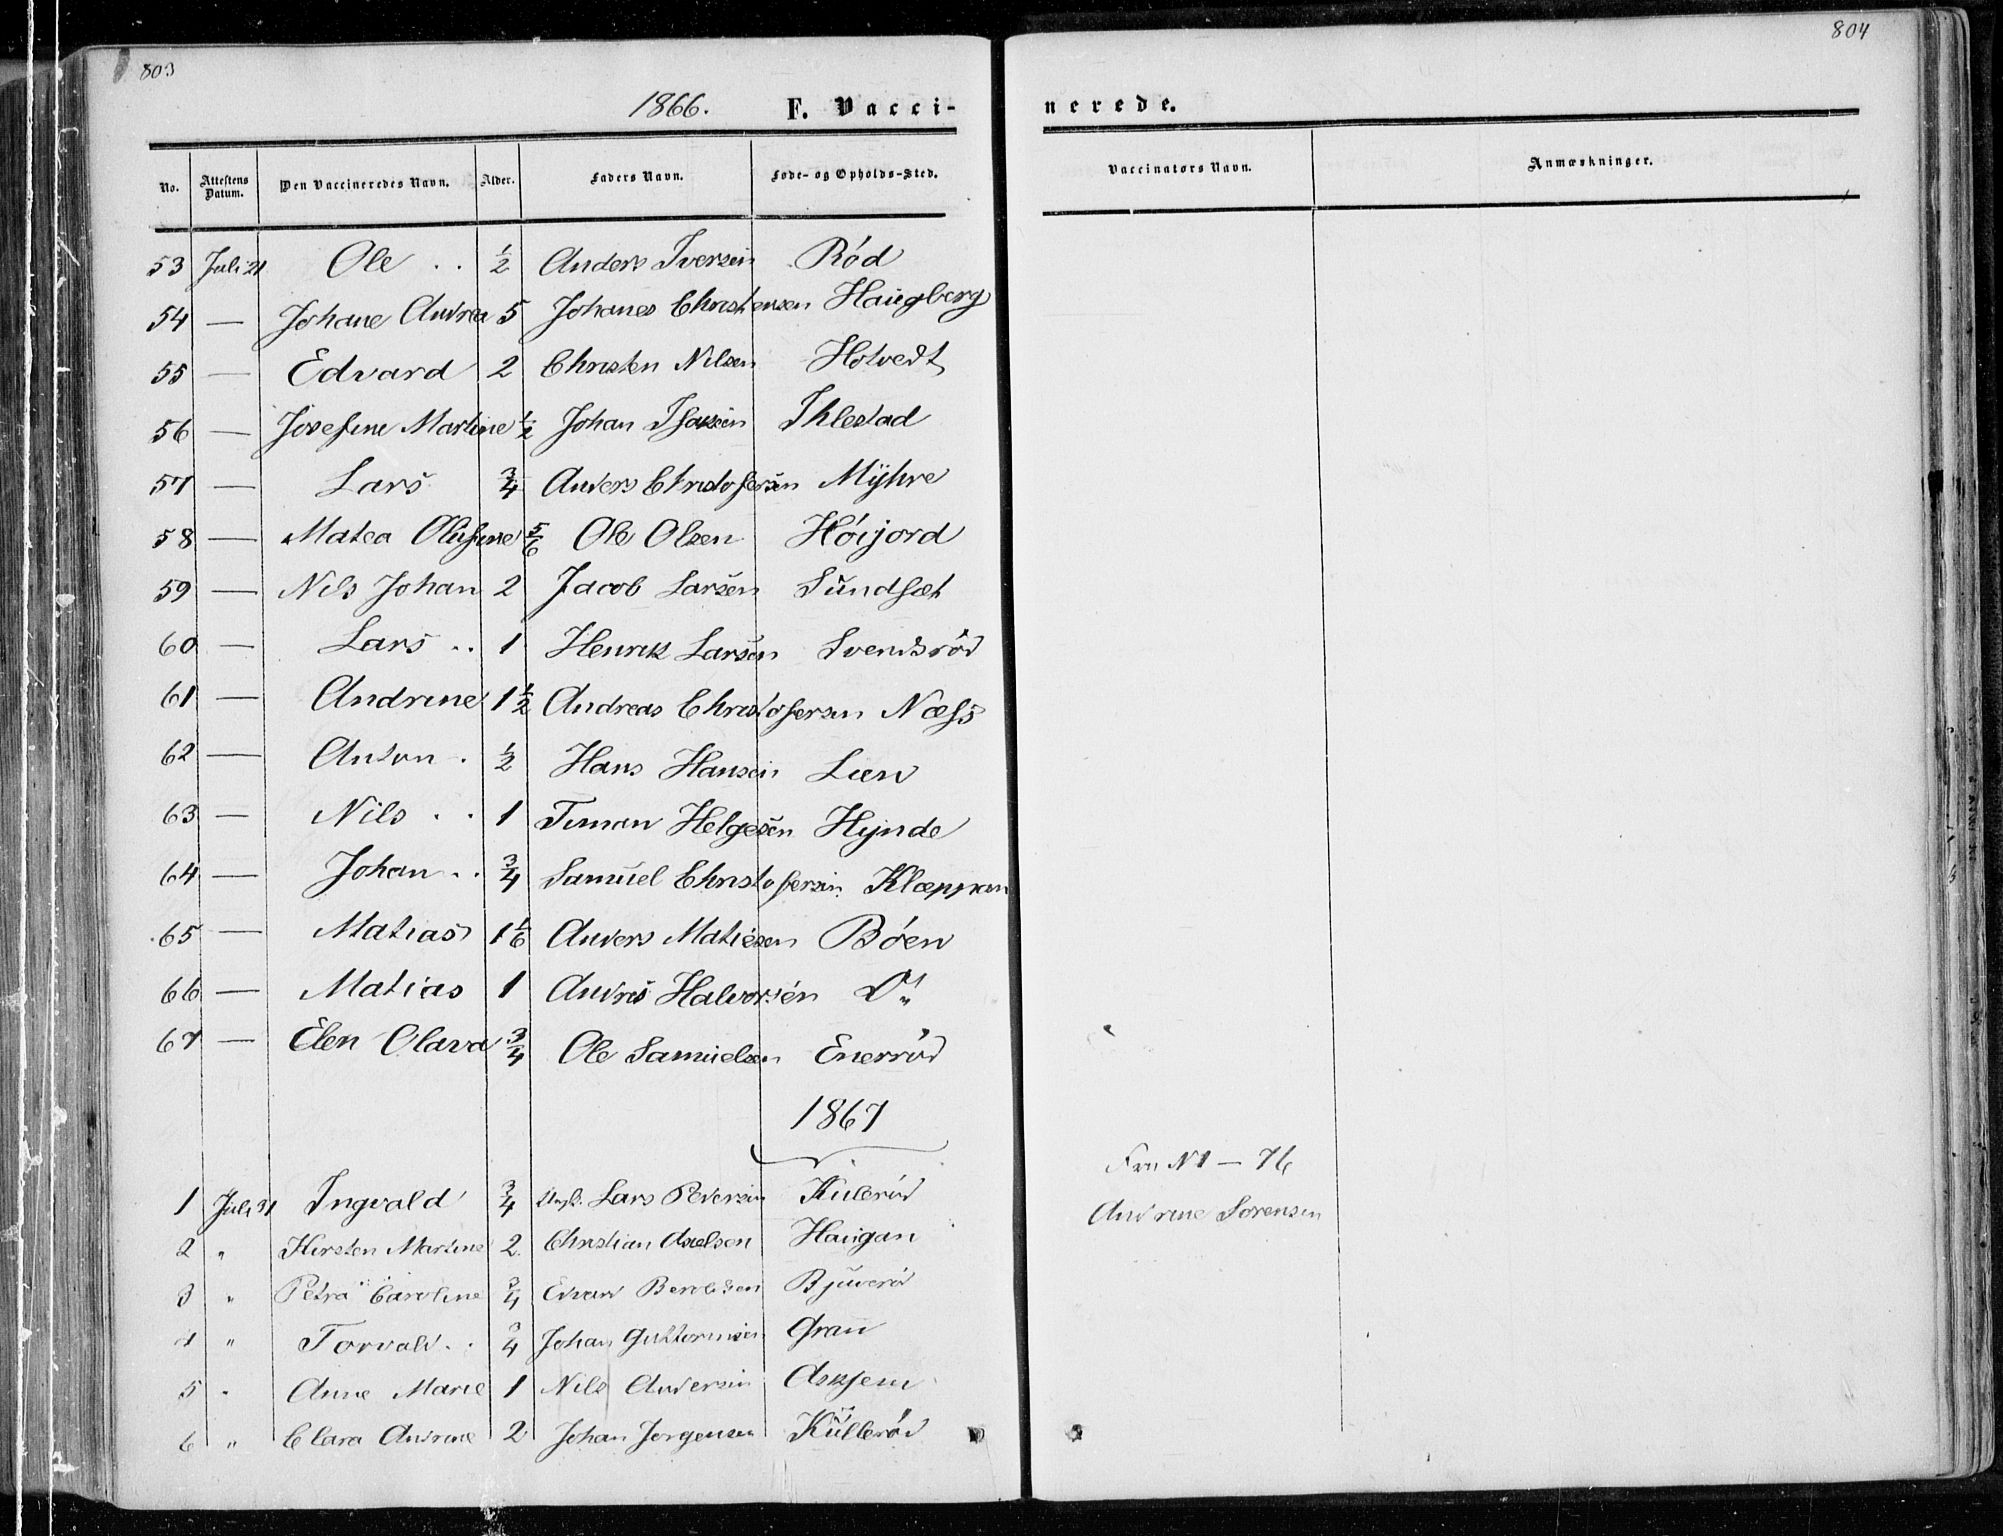 803
804
1866. F. Vacci-
nerede.
No. Attestens Datum. Den Vaccineredes Navn. Alder. Faders Navn. Føde- og Opholds-Sted. Vaccinatørs Navn. Anmærkninger.
53 Juli 21 Ole .. ½ Anders Iversen Röd
54 — Johane Andrea 5 Johanes Christensen Haugberg
55 — Edvard 2 Christen Nilsen Hotvedt
56 — Josefine Martine ½ Johan Isaksen Ihlestad
57 — Lars ¾ Anders Christofersen Myhre
58 — Matea Olufine 5/6 Ole Olsen Höijord
59 — Nils Johan 2 Jacob Larsen Sundset
60 — Lars .. 1 Henrik Larsen Svendsröd
61 — Andrine 1½ Andreas Christofersen Næss
62 — Anton . ½ Hans Hansen Lien
63 — Nils .. 1 Timan Helgesen Hynde
64 — Johan .. ¾ Samuel Christofersen Klæppan
65 — Matias 1 1/6 Anders Matiesen Böen
66 — Matias 1 Andres Halvorsen Do
67 — Elen Olava ¾ Ole Samuelsen Eneröd
1867
Fra N 1 — 76
1 Juli 31 Ingvald ¾ Ungk. Lars Pedersen Kuleröd
Andrine Sorensen
2 " Kirsten Martine 2. Christian Axelsen Haugan
3 " Petra Caroline ¾ Edvard Bjueröd
4 " Torvald .. ¾ Johan Guttormsen Gran
5 " Anne Marie 1 Nils Andersen Askjem
6 " Clara Andrine 2 Johan Jorgensen Külleröd